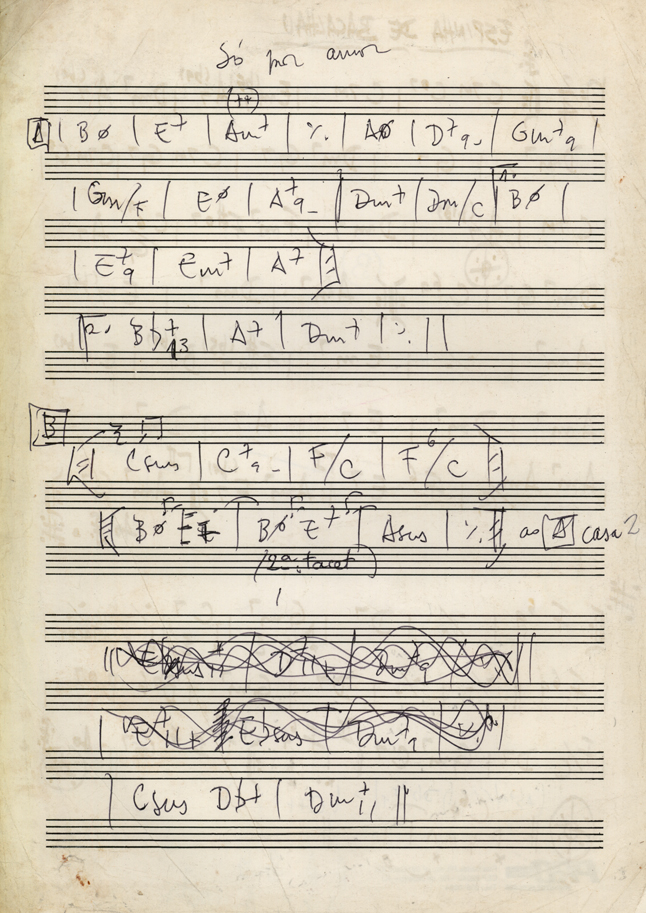 Só por amor
(7+)
A | BØ | E7 | Am7 | ٪ | AØ | D7 9- | Gm7 9 |
| Gm/F | EØ | A7 9- || Dm7 | Dm/C | 1. BØ |
| E7 9 | Em7 | A7 ||
2. Bb7 13 | A7 | Dm7 | ٪ ||
B
Csus | C7 9- | F/C | F6/C
BØ | BØ E7 | Asus | ٪ ao A casa 2
(2ª. tacet)
Csus Db7 | Dm7 11 ||